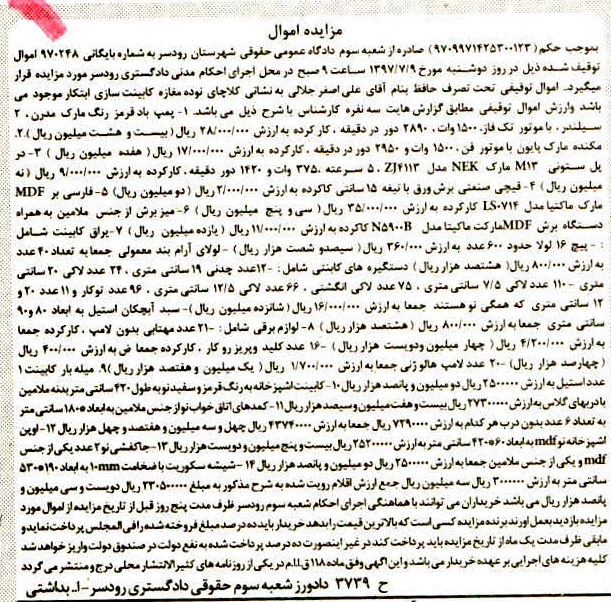 مزایده اموال
بموجب حکم (۹۷۰۹۹۷۱۴۲۵۳۰۰۱۲۳) صادره از شعبه سوم دادگاه عمومی حقوقی شهرستان رودسر به شماره بایگانی ۹۷۰۲۴۸ اموال
توقیف شده ذیل در روز دوشنبه مورخ ۱۳۹۷/۷/۹ ساعت ۹ صبح در محل اجرای احکام مدنی دادگستری رودسر مورد مزایده قرار
میگیرد. اموال توقیفی تحت تصرف حافظ بنام آقای علی اصغر جلالی به نشانی کلاچای نوده مغازه کابینت سازی ابتکار موجود می
باشد وارزش اموال توقیفی مطابق گزارش هایت سه نفره کارشناس با شرح ذیل می باشد. ۱- پمپ باد قرمز رنگ مارک مدرن، ۲
سیلندر، با موتور تک فاز، ۱۵۰۰ وات، ۲۸۹۰ دور در دقیقه، کار کرده به ارزش ۲۸/۰۰۰/۰۰۰ ریال (بیست و هشت میلیون ریال).۲.
مکنده مارک پایون با موتور فن، ۱۵۰۰ وات و ۲۹۵۰ دور در دقیقه، کارکرده به ارزش ۱۷/۰۰۰/۰۰۰ ریال (هفده میلیون ریال) ۳- در
یل ستونی M۱۳ مارک NEK مدل ZJ۴۱۱۳، ۵ سرعته، ۳۷۵ وات و ۱۴۲۰ دور دقیقه، کارکرده به ارزش ۹/۰۰۰/۰۰۰ ریال (نه
میلیون ریال) ۴- قیچی صنعتی برش ورق با تیغه ۱۵ سانتی کاکرده به ارزش ۲/۰۰۰/۰۰۰ ریال (دو میلیون ریال) ۵- فارسی بر MDF
مارک ماکتیا مدل LS۰۷۱۴ کارکرده به ارزش ۳۵/۰۰۰/۰۰۰ ریال (سی و پنج میلیون ریال) ۶- میز برش از جنس ملامین به همراه
دستگاه برش MDF مارکت ماکیتا مدل N۵۹۰۰B کاکرده به ارزش ۱۱/۰۰۰/۰۰۰ ریال (یازده میلیون ریال) ۷- یراق کابینت شامل
: - پیچ ۱۶ لولا حدود ۶۰۰ عدد به ارزش ۳۶۰/۰۰۰ ریال (سیصدو شصت هزار ریال) - لولای آرام بند معمولی جمعا به تعداد ۴۰ عدد
به ارزش ۸۰۰/۰۰۰ ریال( هشتصد هزار ریال) دستگیره های کابنتی شامل : -۱۲ عدد چدنی ۱۹ سانتی متری، ۲۴ عدد لاکی ۲۰ سانتی
متری -۱۱۰ عدد لاکی ۷/۵ سانتی متری، ۷۵ عدد لاکی انگشتی، ۶۶ عدد لاکی ۱۲/۵ سانتی متری، ۹۶ عدد توکار و ۱۱ عدد ۲۰ و
۱۲ سانتی متری که همگی نو هستند جمعا به ارزش ۱۶/۰۰۰/۰۰۰ ریال (شانزده میلیون ریال)- سبد آبچکان استیل به ابعاد ۸۰ و ۹۰
سانتی متری جمعا به ارزش ۸۰۰/۰۰۰ ریال (هشتصد هزار ریال) ۸- لوازم برقی شامل : -۲۱ عدد مهتابی بدون لامپ، کارکرده جمعا
به ارزش ۴/۲۰۰/۰۰۰ ریال (چهار میلیون ودویست هزار ریال) -۱۶ عدد کلید وپریز رو کار، کارکرده جمعا ض به ارزش ۴۰۰/۰۰۰ ریال
(چهارصد هزار ریال) -۲۰ عدد لامپ هالوژنی جمعا به ارزش ۱/۷۰۰/۰۰۰ ریال (یک میلیون و هفتصد هزار ریال)۹. میله بار کابینت ۱
عدد استیل به ارزش ۲۵۰۰۰۰۰ ریال دو میلیون و پانصد هزار ریال ۱۰- کابینت اشپزخانه به رنگ قرمز و سفید نو به طول ۴۲۰ سانتی متر بدنه ملامین
با دربهای گلاس به ارزش ۲۷۳۰۰۰۰۰ ریال بیست و هفت میلیون و سیصد هزار ریال ۱۱- کمدهای اتاق خواب نو از جنس ملامین به ابعاد ۱۸۰۰۵ سانتی متر
به تعداد ۶ عدد بدون درب هر کدام به ارزش ۷۲۹۰۰۰۰ ریال جمعا به ارزش ۴۳۷۴۰۰۰۰ ریال چهل و سه میلیون و هفتصد و چهل هزار ریال ۱۲- اوپن
اشپزخانه نو mdf به ابعاد ۶۰*۴۲۰ سانتی متر به ارزش ۲۵۲۰۰۰۰۰ ریال بیست و پنج میلیون و دویست هزار ریال ۱۳- جاکفشی نو ۲ عدد یکی از جنس
mdf و یکی از جنس ملامین جمعا به ارزش ۲۵۰۰۰۰۰ ریال دو میلیون و پانصد هزار ریال ۱۴- شیشه سکوریت با ضخامت ۱۰mm به ابعاد ۱۹۰*۵۳۰
سانتی متر به ارزش ۳۰۰۰۰۰۰ ریال سه میلیون ریال جمع ارزش اقلام رویت شده به شرح مذکور به مبلغ ۲۳۳۵۰۰۰۰۰ ریال دویست و سی میلیون و
پانصد هزار ریال می باشد خریداران می توانند با هماهنگی اجرای احکام شعبه سوم رودسر ظرف مدت پنج روز قبل از تاریخ مزایده از اموال مورد
مزایده بازدید بعمل اورند برنده مزایده کسی است که بالاترین قیمت را بدهد خریدار باید ده درصد مبلغ فروخته شده رافی المجلس پرداخت نماید و
مابقی ظرف مدت یک ماه از تاریخ مزایده باید پرداخت کند در غیر اینصورت ده درصد پرداخت شده به نفع دولت در صندوق دولت واریز خواهد شد
کلیه هزینه های اجرایی بر عهده خریدار می باشد و این اگهی وفق ماده ۱۱۸ ق.ا.ا.م در یکی از روزنامه های کثیرالانتشار محلی درج و منتشر می گردد
ح ۳۷۳۹ دادورز شعبه سوم حقوقی دادگستری رودسر-ا. بداشتی